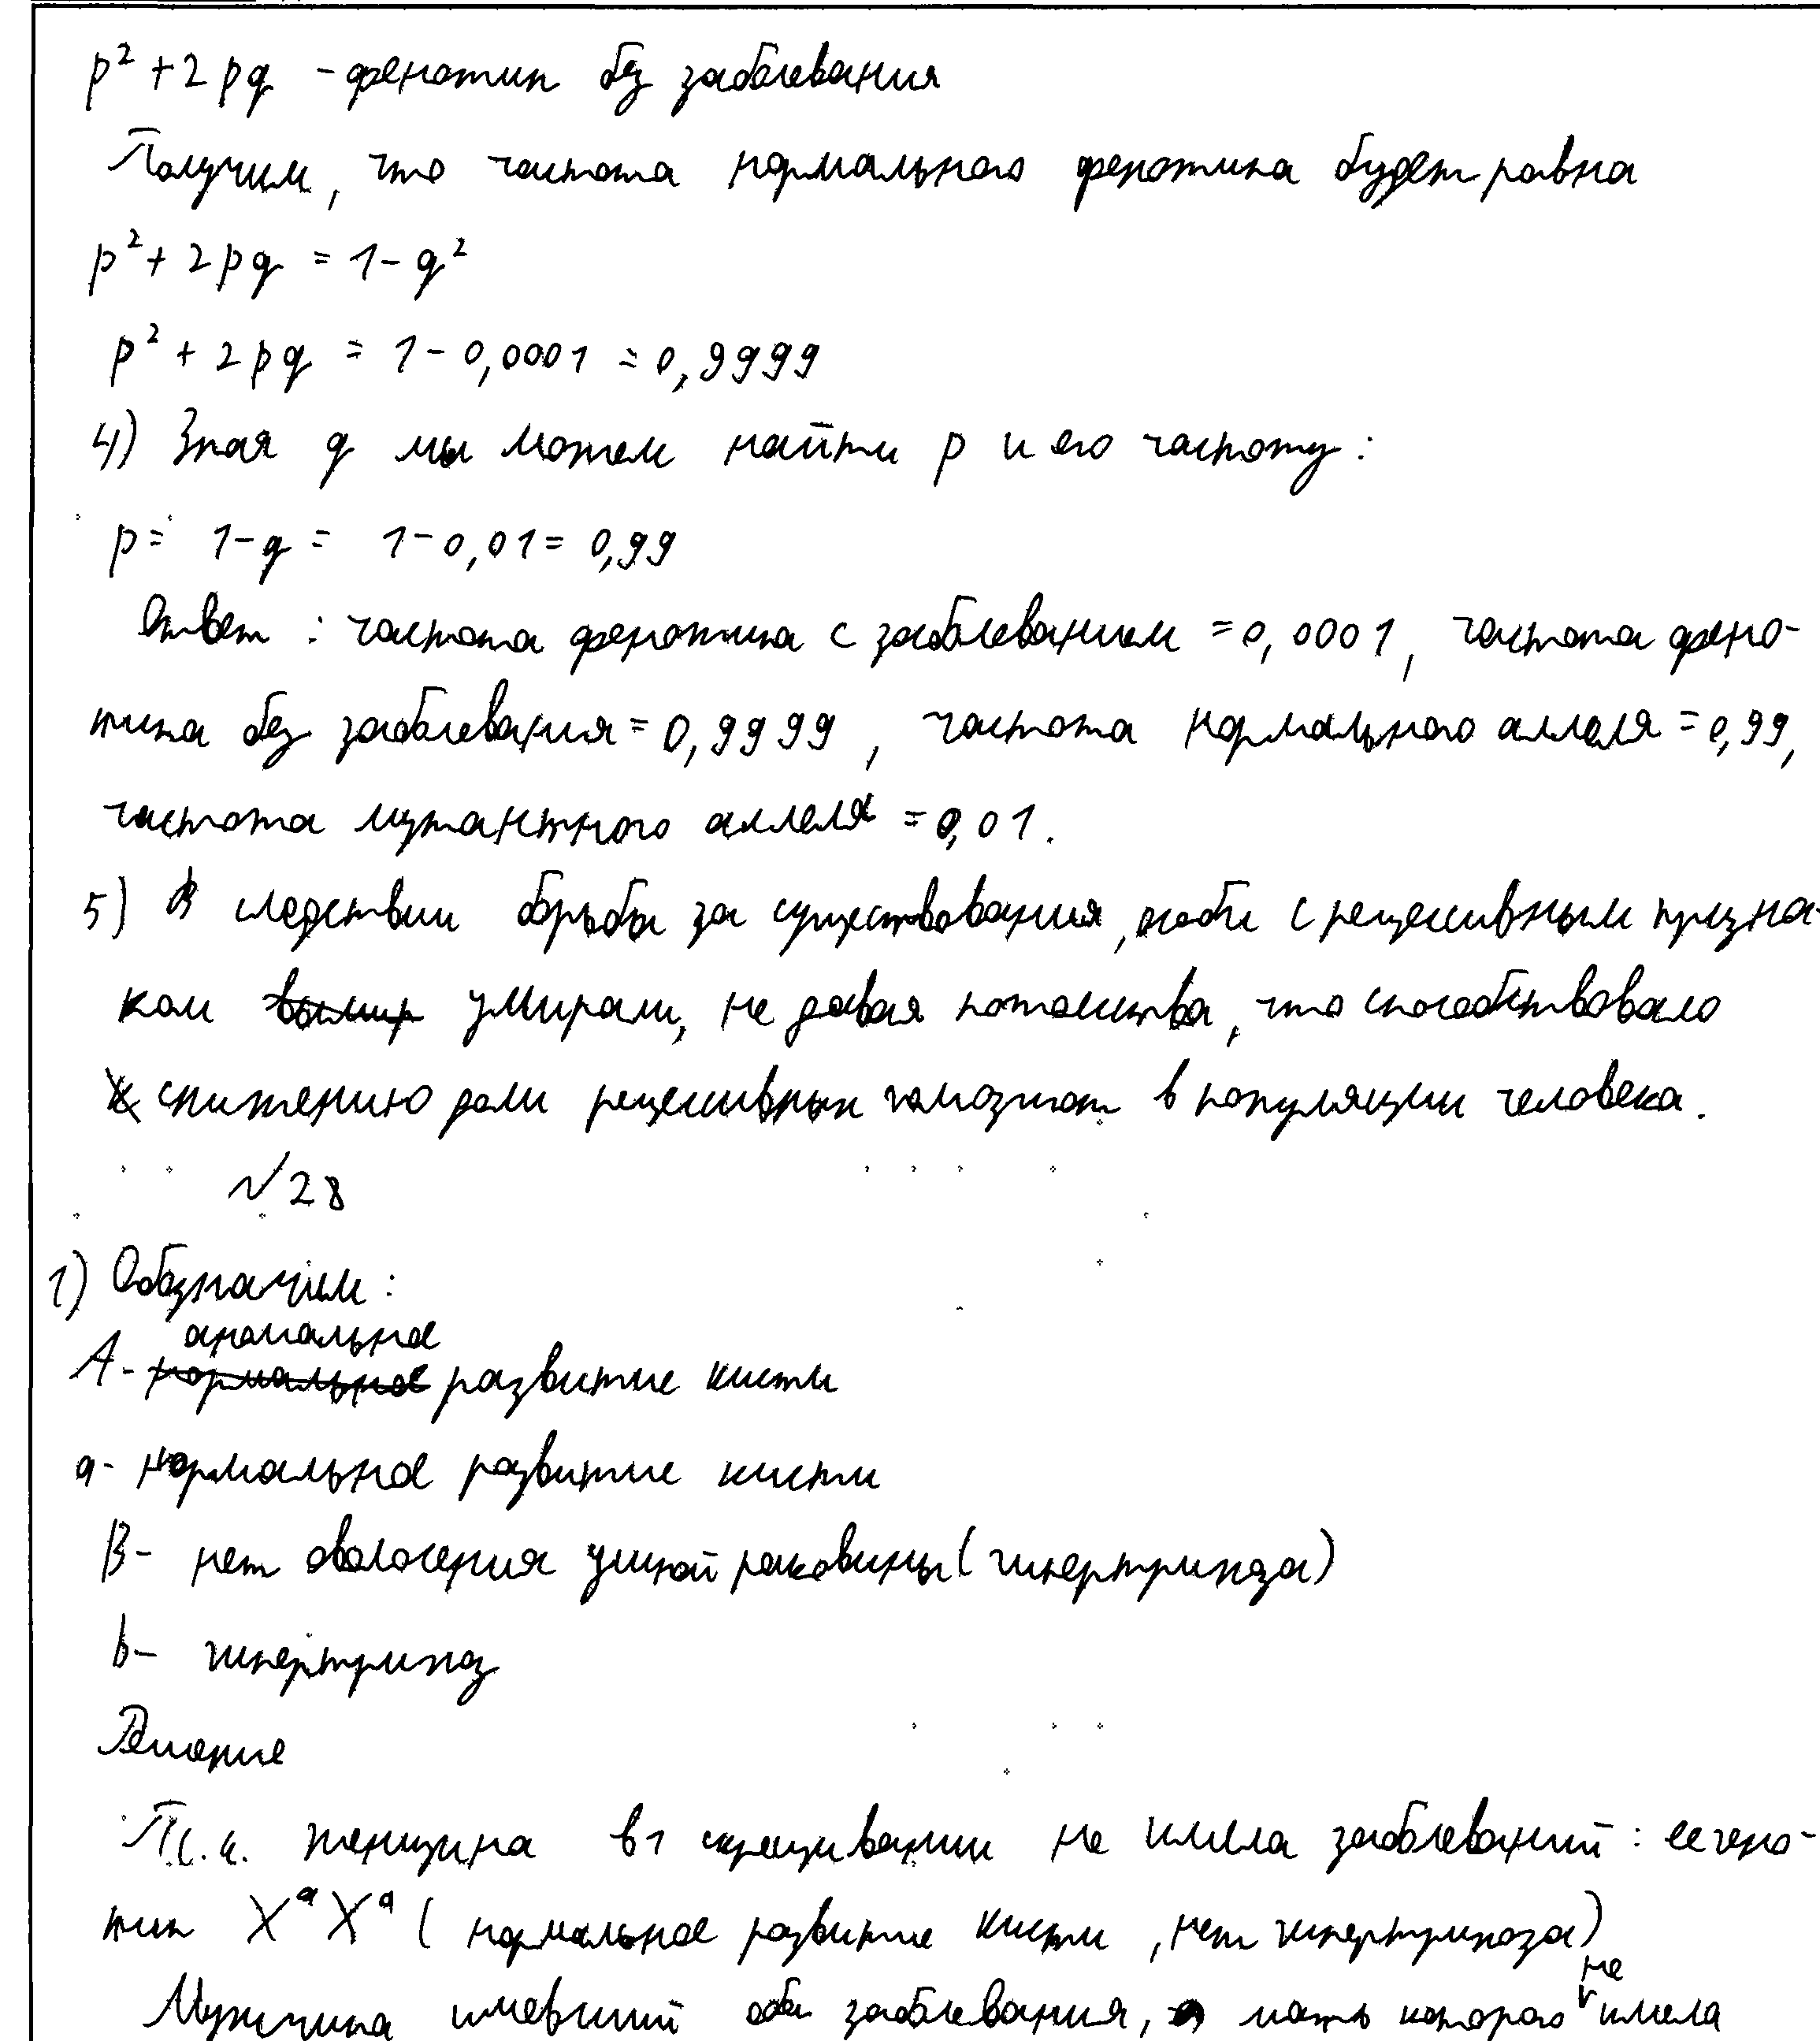 p² + 2pq - фенотип без заболевания
Получим, что частота нормального фенотипа будет равна
p² + 2pq = 1 - q²
p² + 2pq = 1 - 0,0001 = 0,9999
4) Зная q мы можем найти p и его частоту:
p = 1 - q = 1 - 0,01 = 0,99
Ответ: частота фенотипа с заболеванием = 0,0001, частота фено-
типа без заболевания = 0,9999, частота нормального аллеля = 0,99,
частота мутантного аллеля = 0,01.
5) В следствии борьбы за существования, особи с рецессивным призна-
ком умирали, не давая потомства, что способствовало
снижению доли рецессивных гомозигот в популяции человека.
№28
1) Обозначим:
A - аномальное развитие кисти
a - нормальное развитие кисти
B - нет оволосения ушной раковины (гипертрихоза)
b - гипертрихоз
Решение
Т.к. женщина в 1 скрещивании не имела заболеваний: ее гено-
тип XᵃXᵃ (нормальное развитие кисти, нет гипертрихоза)
Мужчина имевший оба заболевания, мать которого не имела